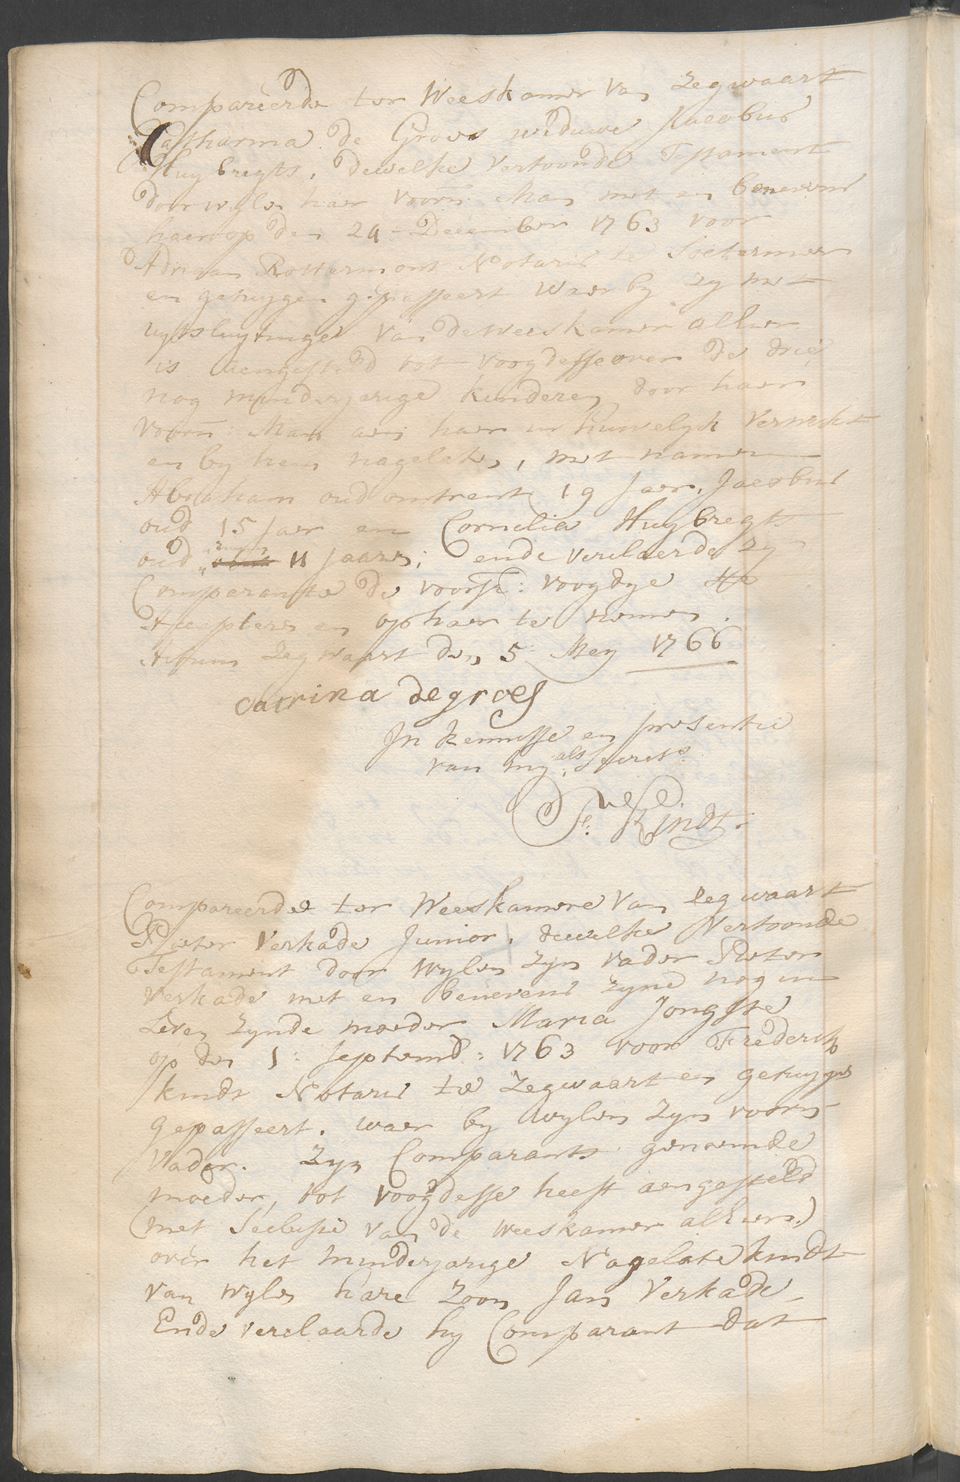 Compareerde ter Weeskamer van Zegwaart
Catharina de Groes weduwe Jacobus
Huybregts, dewelke vertoonde Testament
door wylen haer voorn: Man met en benevens
haer op den 24 December 1763 voor
Adriaan Rottermont Notaris te Soetermeer
en getuygen gepasseert waer by zy met
uytsluytinge van de weeskamer alhier
is aengesteld tot voogdesse over de drie
nog minderjarige kinderen door haer
voorn: Man aen haer in Huwelyk verwekt
en by hem nagelaten, met namen
Abraham oud omtrent 19 Jaer, Jacobus
oud 15 Jaer en Cornelia Huybregts
oud ruim 11 Jaaren; ende verclaerde zy
Comparante de voorsz: voogdye te
Accepteren en op haer te nemen.
Actum Zegwaart den 5 Mey 1766
catrina de groes
In kennisse en presentie
van my als Secrets
F: Kindt.
Compareerde ter Weeskamere van Zegwaart
Pieter Verkade Junior, dewelke Vertoonde
Testament door wylen zyn vader Pieter
Verkade met en benevens zyne nog in
Leven zynde moeder Maria Jongste
op den 1: Septemb: 1763 voor Frederik
kindt Notaris te Zegwaart en getuygen
gepasseert. waer by wylen zyn voorn
Vader. Zyn Comparants genoemde
moeder, tot voogdesse heeft aengesteld
(met Seclusie van de weeskamer alhier)
over het minderjarige Nagelate kindt
van wylen hare Zoon Jan Verkade
Ende verclaarde hy Comparant dat